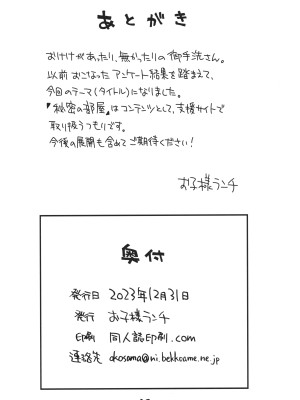 あとがき
おけけがあったり、無かったりの御手洗さん。
以前おこなったアンケート結果を踏まえて、
今回のテーマ(タイトル)になりました。
『秘密の部屋』はコンテンツとして、支援サイトで
取り扱うつもりです。
今後の展開も含めてご期待ください!
お子様ランチ
奥付
発行日 2023年12月31日
発行 お子様ランチ
印刷 同人誌印刷.com
連絡先 okosama@ni.bekkoame.ne.jp